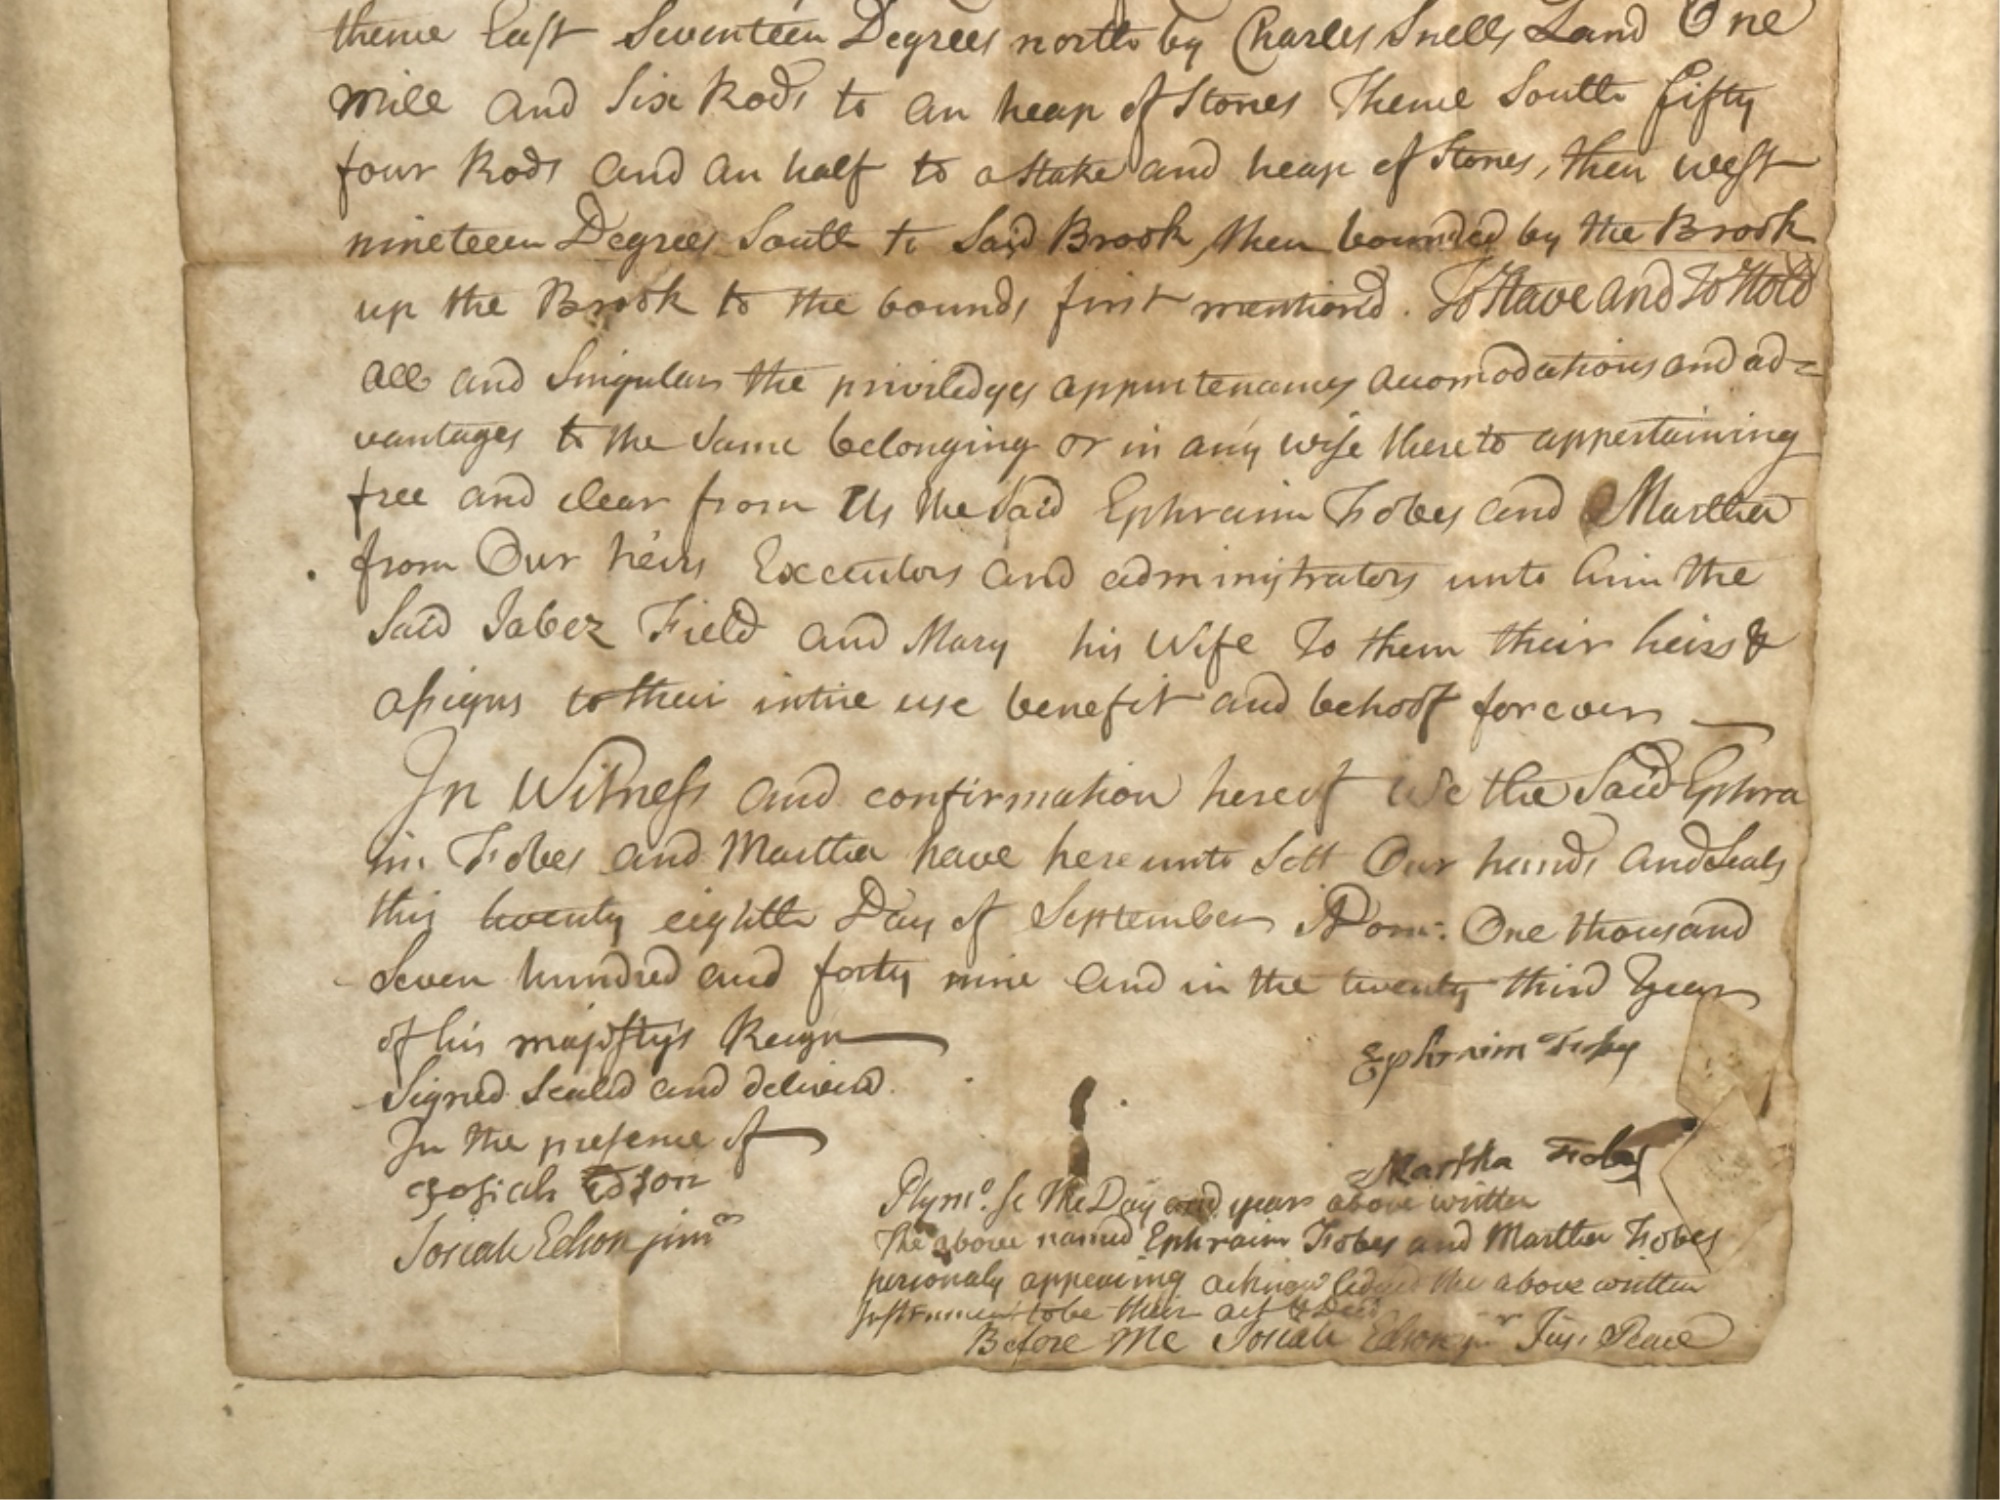 thence East Seventeen Degrees north by Charles Snells Land One
mile and Six Rods to an heap of Stones Thence South fifty
four Rods and an half to a Stake and heap of Stones, then west
nineteen Degrees South to Said Brook, then bounded by the Brook
up the Brook to the bounds first mentiond. To Have and To Hold
all and Singular the priviledges appurtenances accomodations and ad=
vantages to the Same belonging or in any wise there to appertaining
free and clear from Us the Said Ephraim Fobes and Martha
from Our heirs Executors and administrators unto him the
Said Jabez Field and Mary his Wife To them their heirs &
assigns to their intire use benefit and behoof forever
In Witness and confirmation hereof We the Said Ephra
im Fobes and Martha have hereunto Sett Our hands and Seals
this twenty eighth Day of September ADom: One thousand
Seven hundred and forty nine and in the twenty third Year
of his majestys Reign
Ephraim Fobes
Signed Sealed and deliverd
In the presence of
Martha Fobes
Josiah Edson
Josiah Edson junr
Plymo. Sc The Day and year above written
The above named Ephraim Fobes and Martha Fobes
personaly appearing acknowledged the above written
Instrument to be their act & Deed
Before Me Josiah Edson junr Jus: Peace